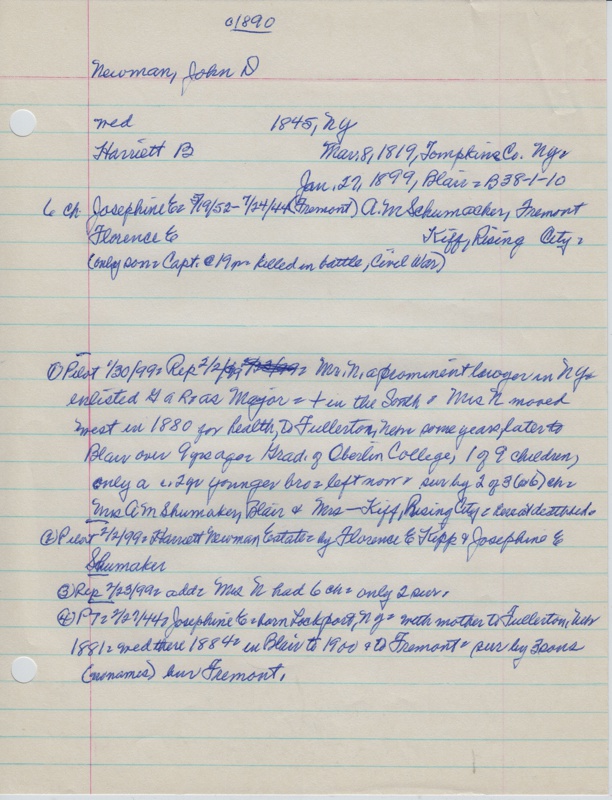 c/1890
Newman, John D
wed 1845, NY
Harriett B Mar. 8, 1819, Tompkins Co. NY=
Jan. 27, 1899, Blair = B38-1-10
6 ch Josephine E= 9/19/52 - 7/24/44 (Fremont) A.M Schumacher, Fremont
Florence E Kiff, Rising City =
(only son = Capt. @ 19 yr = killed in battle, Civil War)
① Pilot 1/30/99 = Rep 2/2/99 = Mr. N, a prominent lawyer in NY=
enlisted G a R as Major = + in the South = Mrs N moved
west in 1880 for health, to Fullerton, Nebr some years later to
Blair over 9 yrs ago = Grad. of Oberlin College, 1 of 9 children,
only a 2 yr younger bro = left now = sur by 2 of 3 (or 6) ch =
Mrs A M Shumaker, Blair & Mrs — Kiff, Rising City = here at deathbed =
② Pilot 2/2/99 = Harriett Newman Estate = by Florence E Kipp & Josephine E
Shumaker
③ Rep 2/23/99 = add = Mrs N had 6 ch = only 2 sur.
④ PT = 2/27/44 = Josephine E = born Lockport, NY = with mother to Fullerton, Nebr
1881 = wed there 1884 = in Blair to 1900 = to Fremont = sur by 3 sons
(no names) bur Fremont.